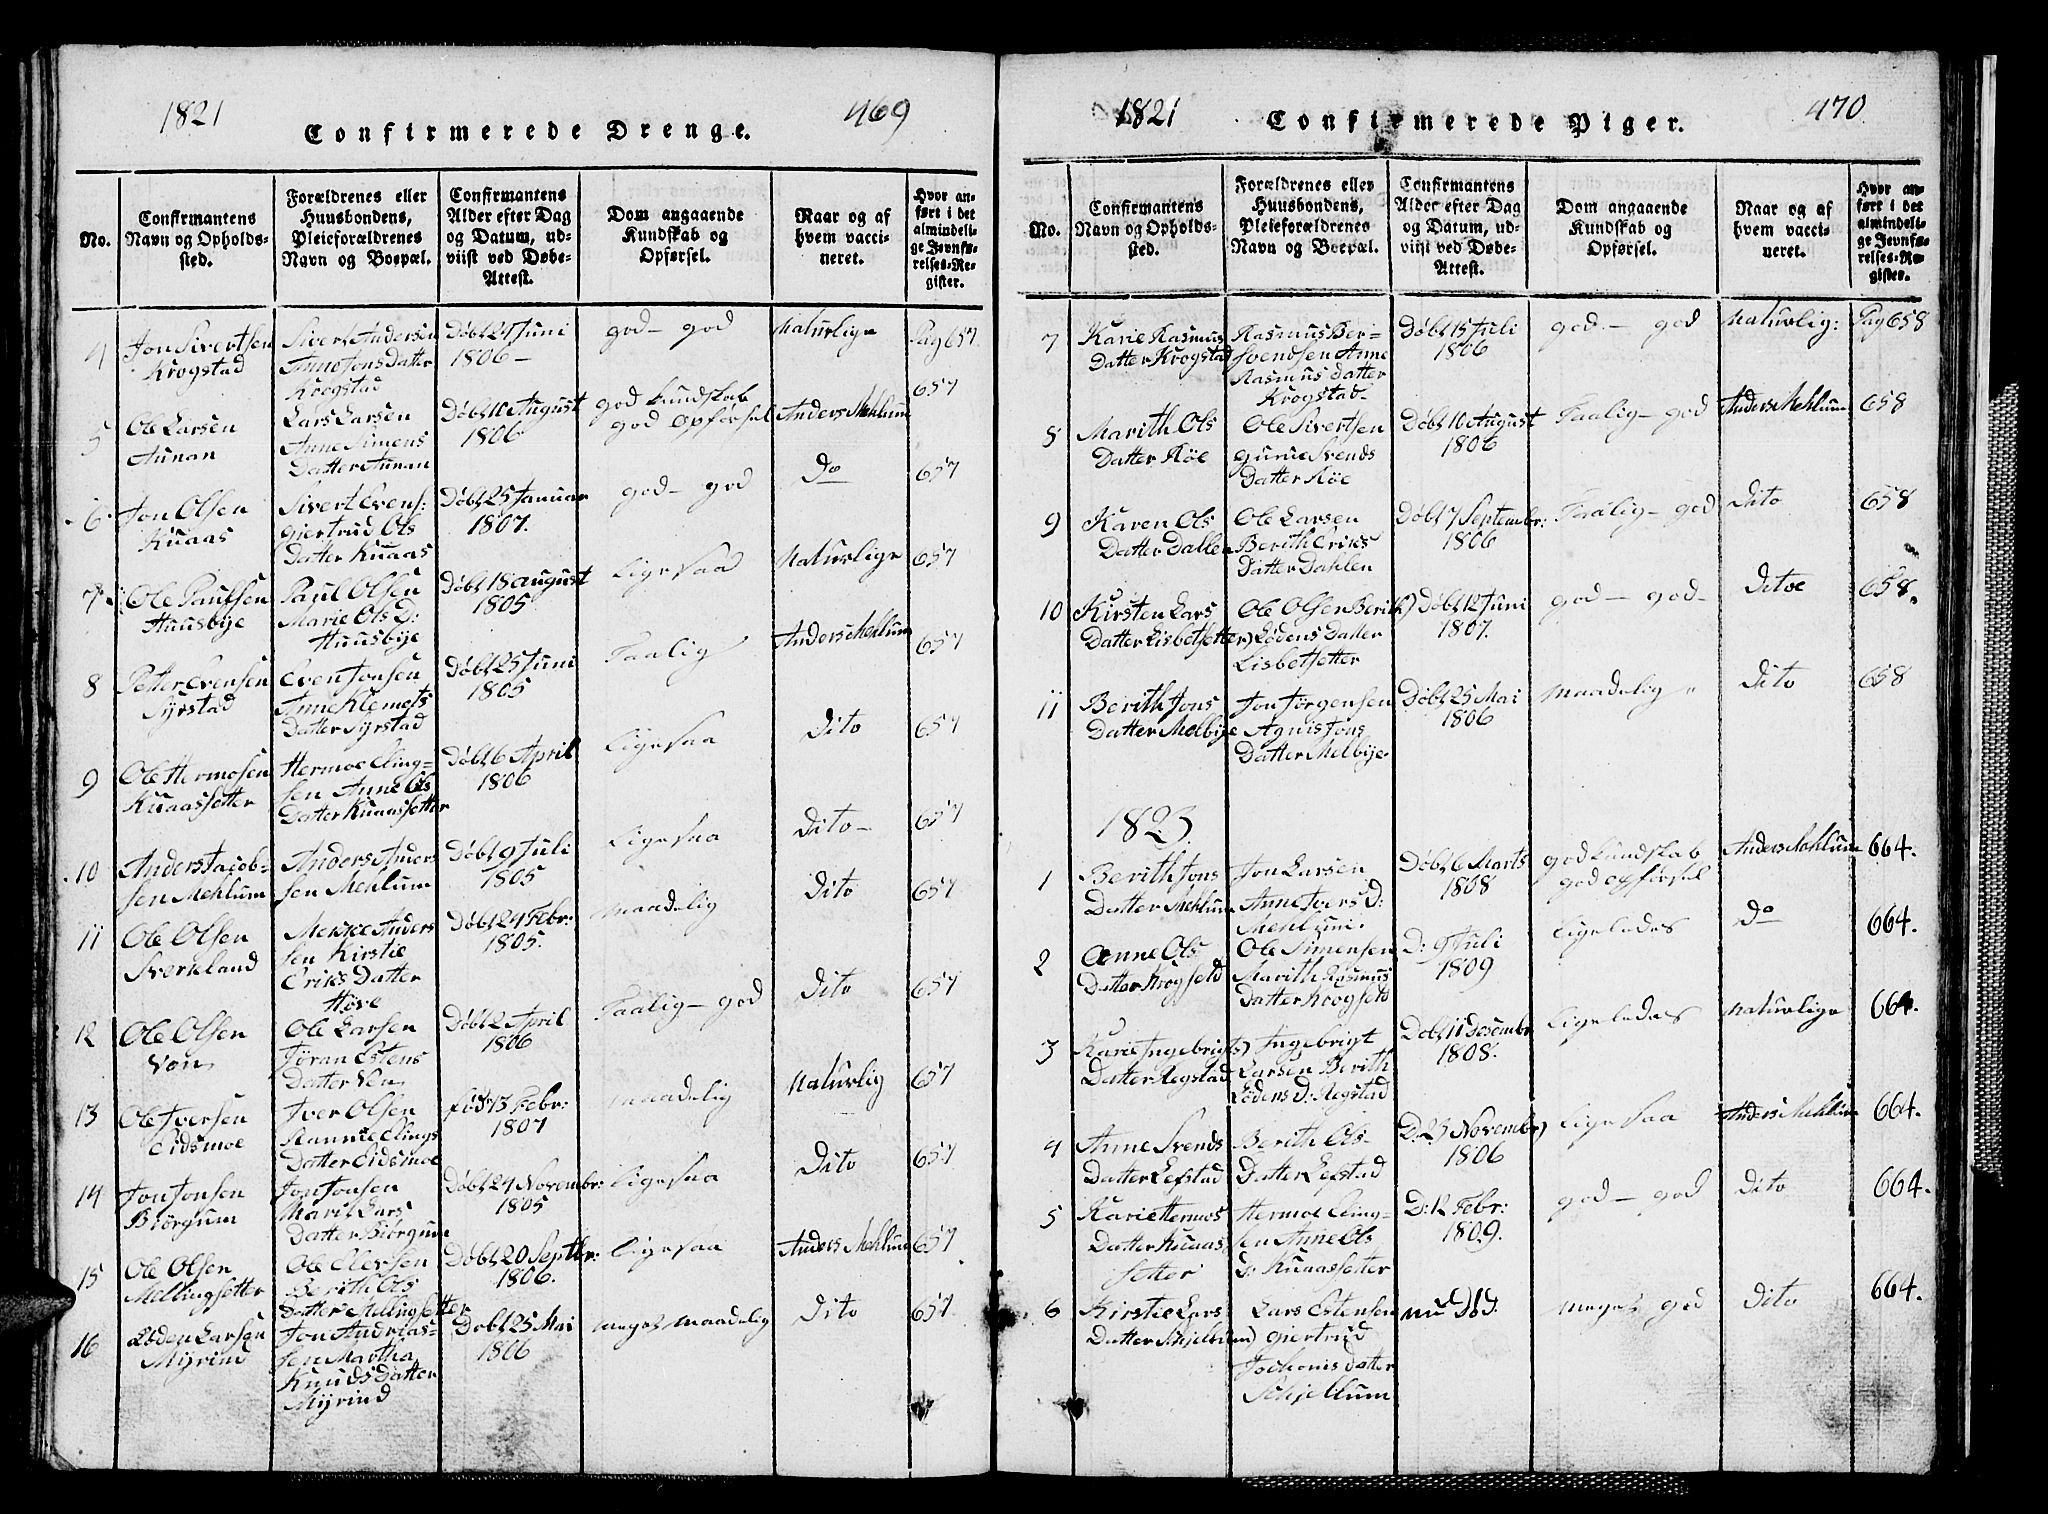 1821
Confirmerede Drenge.
469
No.
Confirmantens Navn og Opholds-sted.
Forældrenes eller Huusbondens, Pleieforældrenes Navn og Boepæl.
Confirmantens Alder efter Dag og Datum, ud-viist ved Døbe-Attest.
Dom angaaende Kundskab og Opførsel.
Naar og af hvem vacci-neret.
Hvor an-ført i det almindeli-ge Jevnfø-relses-Re-gister.
4 Jon Sivertsen Sivert Andersen Døbt 24 Juni god – god Naturlige Pag 657
Krogstad Anne Jons Datter 1806 –
Krogstad
5 Ole Larsen Lars Larsen Døbt 10 August god kundskab Anders Mehlum 657
Aunan Anne Simens 1806. god opførsel
Datter Aunan
6 Jon Olsen Sivert Evens: Døbt 25 Januar god – god Do 657
Kuaas giertrud Ols 1807.
Datter Kuaas
7 Ole Paulsen Paul Olsen Døbt 18 august Ligesaa Naturlige 657
Huusbye Marie Ols D: 1805
Huusbye
8 Petter Evensen Even Jonsen Døbt 25 Juni Taalig Anders Mehlum 657
Syrstad Anne Klemets 1805
Datter Syrstad
9 Ole Hermosen Hermoe Eling= Døbt 6 April Ligesaa Dito 657
Kuaassetter sen Anne Ols 1806
Datter Kuaassetter
10 Anders Jacob- Anders Anders Døbt 9 Juli Ligesaa Dito – 657
sen Mehlum sen Mehlum 1805
11 Ole Olsen Anders Døbt 24 Febr: maadelig Dito 657
sen Kirstie 1805.
Eriks Datter
Høve
12 Ole Olsen Ole Larsen Døbt 2 April Taalig – god Dito 657
Ven Jøran Estens 1806
Datter Ven
13 Ole Iversen Iver Olsen fød 13 Febr: maadelig Naturlig 657
Eidsmoe Elings 1807
Datter Eidsmoe
14 Jon Jonsen Jon Jonsen Døbt 24 Novembr: Ligesaa Dito 657
Biørgum Marit Lars 1805
Datter Biørgum
15 Ole Olsen Ole Døbt 20 Septbr: Ligesaa Anders Mehlum 657
Mellingsetter Berith Ols 1806.
Datter Mellingsetter
16 Loden Larsen Jon Andreas= Døbt 25 Mai meget maadelig Dito 657
Myrind sen Martha 1806
Knuds Datter
Myrind
1821
Confirmerede Piger.
470
No.
Confirmantens Navn og Opholds-sted.
Forældrenes eller Huusbondens, Pleieforældrenes Navn og Boepæl.
Confirmantens Alder efter Dag og Datum, ud-viist ved Døbe-Attest.
Dom angaaende Kundskab og Opførsel.
Naar og af hvem vacci-neret.
Hvor an-ført i det almindeli-ge Jevnfø-relses-Re-gister.
7 Karie Rasmus Rasmus Ber- Døbt 15 Juli god – god Naturlig: Pag 658
Datter Krogstad Svendsen Anne 1806
Rasmus datter
Krogstad
8 Marith Ols Ole Sivertsen Døbt 10 August Taalig – god Anders Mehlum 658
Datter Røe gurue Svends 1806
Datter Røe
9 Karen Ols Ole Larsen Døbt 7 Septembr: Taalig – god Dito 658
Datter Dallen Berith Eriks 1806
Datter Dahlen
10 Kirsten Lars Ole Olsen Berith) Døbt 12 Juni god – god – Ditoe 658.
Datter Lisbetsetter) Lodens Datter 1807.
Lisbetsetter
11 Berith Jons Jon Jørgensen Døbt 25 Mai maadelig Dito 658
Datter Melbye Agnis Jons 1806
Datter Melbye
1823.
1 Berith Jons Jon Larsen Døbt 6 Marts god kundskab Anders Mehlum 664.
Datter Mehlum Anne Ivers D: 1808 god opførsel
Mehlum
2 Anne Ols Ole Simensen D: 9 Juli Ligeledes Do 664.
Datter Krogseld Marith Rasmus 1809
Datter Krogseld
3 Karie Ingebrigts) Ingebrigt Døbt 11 Desembr Ligeledes Naturlige 664.
Datter Regstad Larsen Berith 1808.
Lodens D: Regstad
4 Anne Svends Berith Ols D: 23 Novembr) Ligesaa Anders Mehlum 664.
Datter Lefstad Datter Lefstad 1806
5 Karie Hermos Hermoe Eling= D: 12 Febr: god – god Dito 664.
Datter Kuaas sen Anne Ols 1809.
setter D: Kuaassetter
6 Kirstie Lars Lars Estensen meget god Dito 664.
Datter Skjellum) giertrud
Jochoms datter
Schjellum